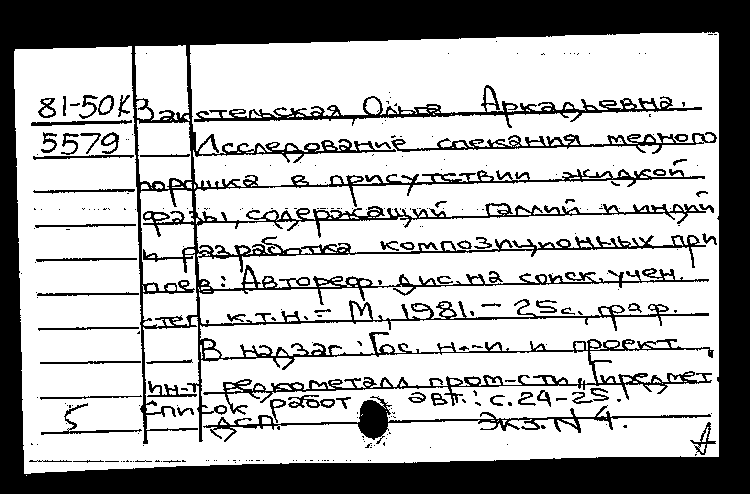 81-50К Закстельская, Ольга Аркадьевна.
5579 Исследование спекания медного
порошка в присутствии жидкой
фазы, содержащий галлий и индий
и разработка композиционных при
поев: Автореф. дис. на соиск. учен.
степ. к.т.н. - М., 1981. - 25с., граф.
В надзаг.: Гос. н.-и. и проект.
ин-т редкометалл. пром-сти „Гиредмет."
Список работ авт.: с.24-25.
5 ДСП. Экз. N 4.